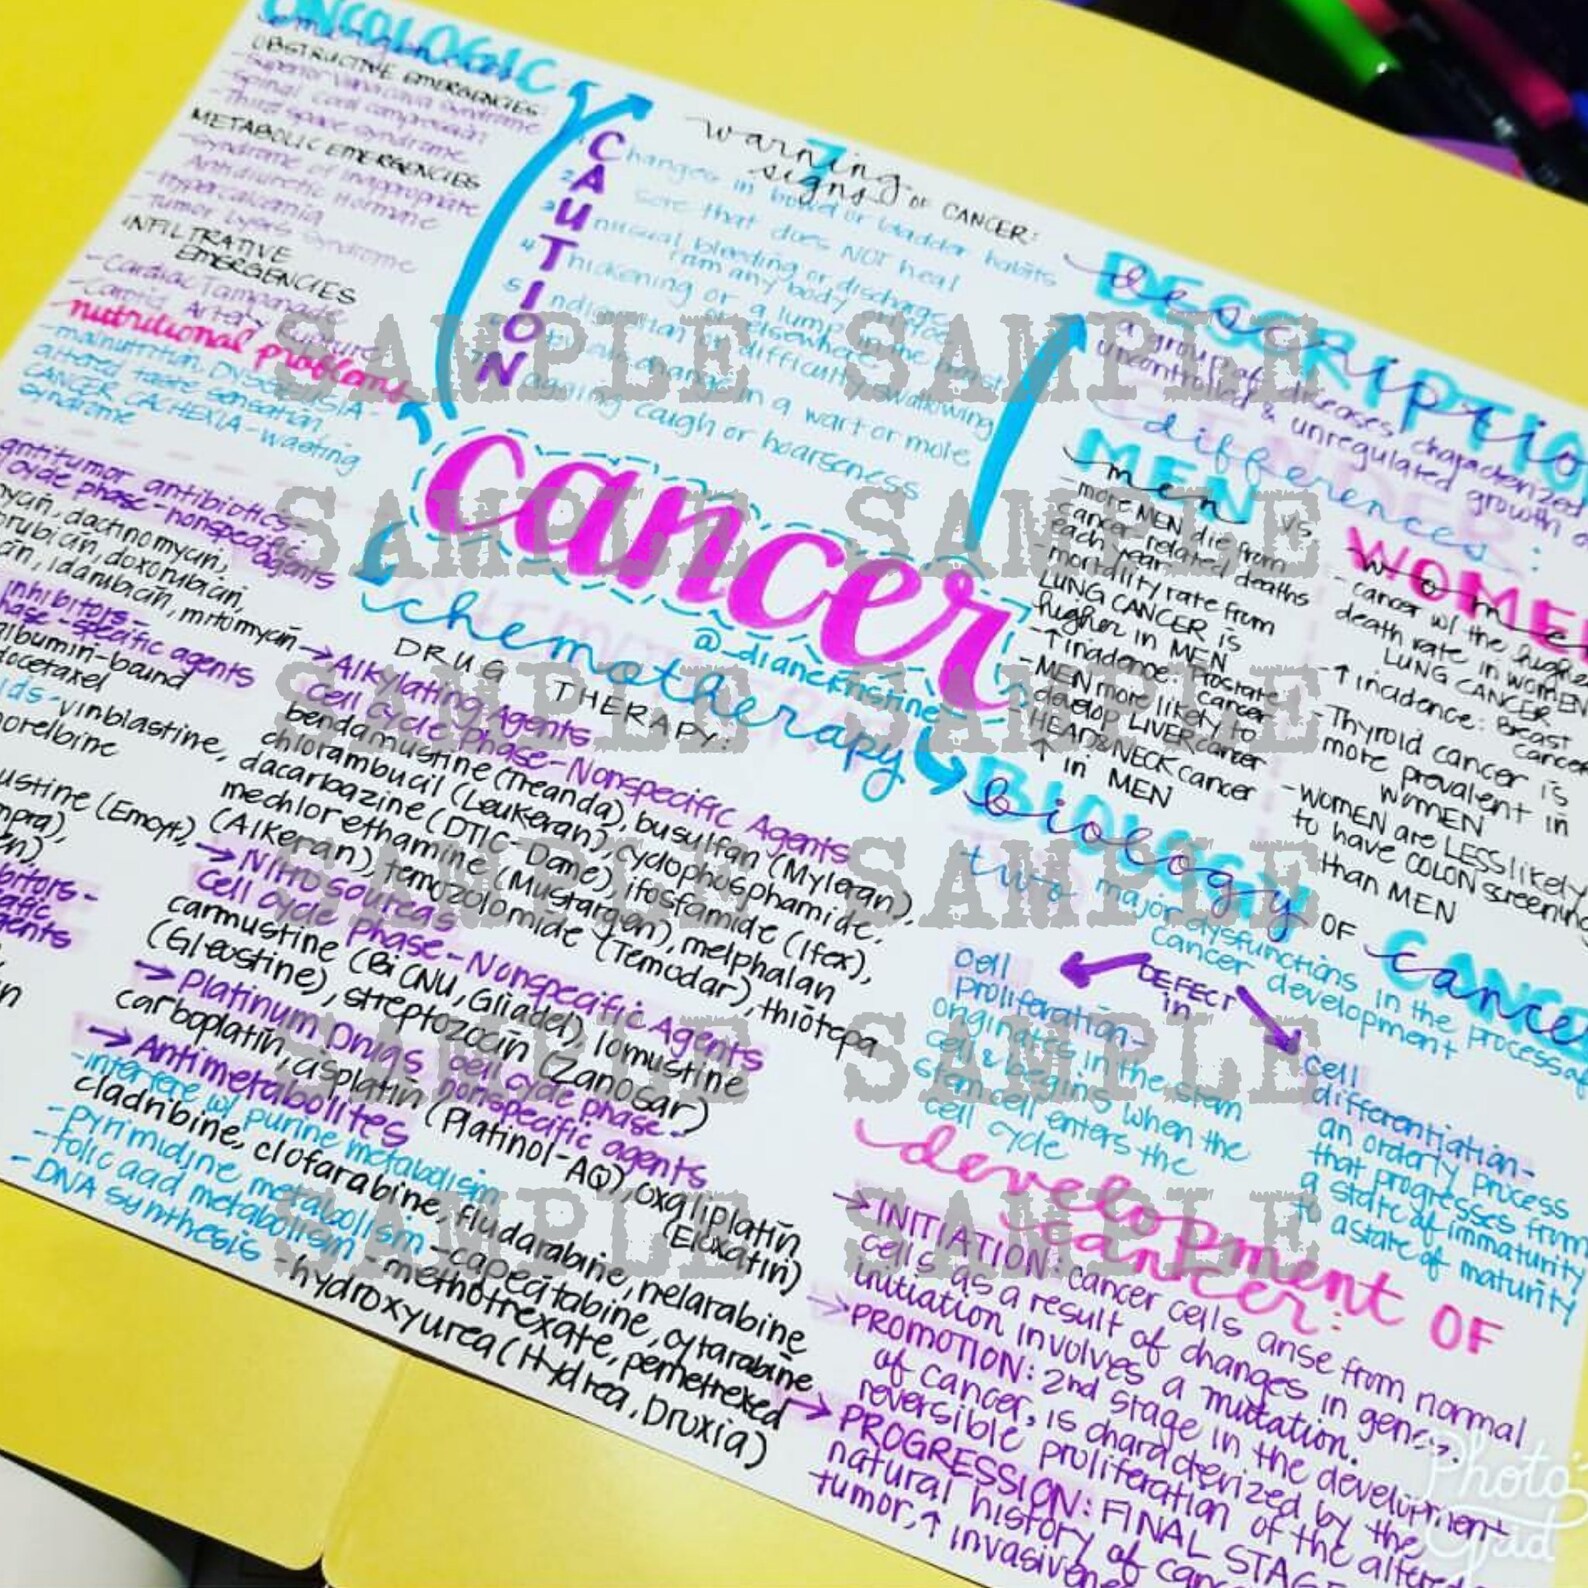 ONCOLOGIC
emergencies
OBSTRUCTIVE EMERGENCIES:
-Superior vena cava syndrome
-Spinal cord compression
-Third space syndrome
METABOLIC EMERGENCIES
-Syndrome of Inappropriate
Antidiuretic Hormone
-Hypercalcemia
-Tumor Lysis Syndrome
INFILTRATIVE
EMERGENCIES
-Cardiac Tamponade
-Carotid Artery Rupture
nutritional problems
-malnutrition, DYSGEUSIA-
altered taste sensation
CANCER CACHEXIA-wasting
syndrome
7
warning
signs OF CANCER:
CAUTION
1 Changes in bowel or bladder habits
2 A sore that does NOT heal
3 Unusual bleeding or discharge
from any body orifice
4 Thickening or a lump in the breast
or elsewhere
5 Indigestion or difficulty swallowing
6 Obvious change in a wart or mole
7 Nagging cough or hoarseness
cancer
@_dianekristine_
DESCRIPTION
description
-a group of diseases characterized
uncontrolled & unregulated growth
GENDER
differences:
MEN
men
vs.
-more MEN die from
cancer related deaths
each year.
-mortality rate from
LUNG CANCER is
higher in MEN
-↑incidence: Prostate
cancer
-MEN more likely to
develop LIVER cancer
-HEAD&NECK cancer
↑ in MEN
WOMEN
women
-cancer w/ the highest
death rate in women
LUNG CANCER
-↑ incidence: Breast
Cancer
-Thyroid cancer is
more prevalent in
WOMEN
-WOMEN are LESS likely
to have COLON screening
than MEN
antitumor antibiotics-
cycle phase-nonspecific
agents
dactinomycin,
doxorubicin,
idarubicin, mitomycin
inhibitors-
phase-specific agents
albumin-bound
docetaxel
-vinblastine,
(Emcyt),
agents
CHEMOTHERAPY
chemotherapy
DRUG THERAPY:
→Alkylating Agents
Cell Cycle Phase-Nonspecific Agents
bendamustine (Treanda), busulfan (Myleran),
chlorambucil (Leukeran), cyclophosphamide,
dacarbazine (DTIC-Dame), ifosfamide (Ifex),
mechlorethamine (Mustargen), melphalan
(Alkeran), temozolomide (Temodar), thiotepa
→Nitrosoureas
Cell Cycle Phase-Nonspecific Agents
carmustine (BiCNU, Gliadel), lomustine
(Gleostine), streptozocin (Zanosar)
→Platinum Drugs cell cycle phase-
nonspecific agents
carboplatin, cisplatin (Platinol-AQ), oxaliplatin
(Eloxatin)
→Antimetabolites
-interfere w/ purine metabolism
cladribine, clofarabine, fludarabine, nelarabine
-pyrimidine metabolism-capecitabine, cytarabine
-folic acid metabolism-methotrexate, pemetrexed
-DNA synthesis-hydroxyurea (Hydrea, Droxia)
BIOLOGY
biology OF CANCER
cancer
two major dysfunctions in the process of
cancer development
DEFECT
in
cell
proliferation-
originates in the stem
cell & begins when the
stem cell enters the
cell cycle
cell
differentiation-
an orderly process
that progresses from
a state of immaturity
to a state of maturity
development OF
cancer:
→INITIATION: cancer cells arise from normal
cells as a result of changes in genes.
initiation involves a mutation.
→PROMOTION: 2nd stage in the development
of cancer, is characterized by the
reversible proliferation of the altered
→PROGRESSION: FINAL STAGE
natural history of
tumor, ↑ invasiveness
SAMPLE SAMPLE
SAMPLE SAMPLE
SAMPLE SAMPLE
SAMPLE SAMPLE
SAMPLE SAMPLE
SAMPLE SAMPLE
Photo
Grid